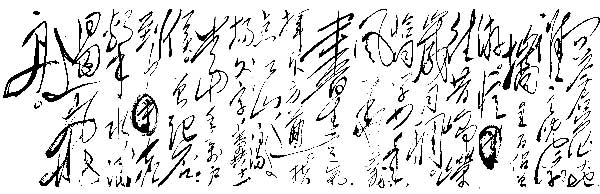 问苍茫大地
谁主沉浮
携来百侣曾
游。忆
往昔峥嵘
岁月稠
恰同学少年
风华正茂
书生意气
挥斥方遒指
点江山激
扬文字粪土
当年万户
侯。曾记否
到中流
击水浪
遏飞
舟。